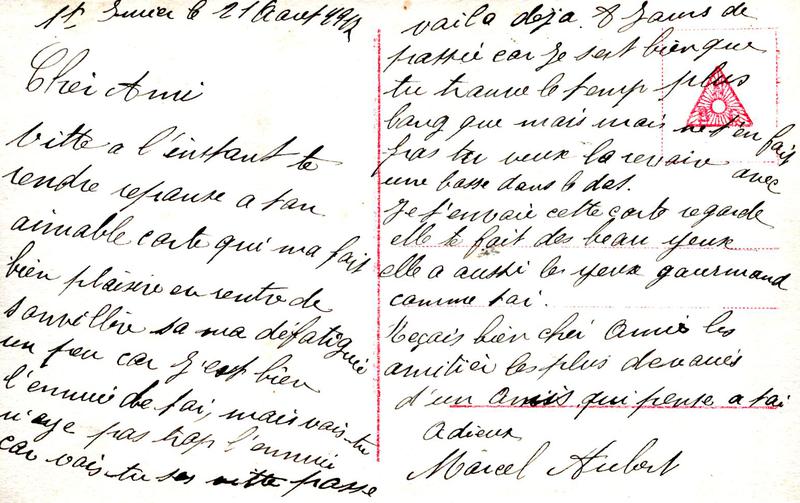 St Imier le 21 Aout
Cher Ami
Vitte a l'instant te
rendre reponse a ton
aimable carte qui ma fait
bien plaisire en rentre de
sa ma defatiguée
un peu car J'est bien
l'ennuie de toi, mais vois-tu
n'aye pas trop l'ennuie
car vois-tu ses vitte passe
voila deja 8 Jours de
passée car Je sest bien que
tu trouve le temp plus
long que moi mais ne t'en fait
pas tu veux la revoire avec
une bosse dans le dos.
Je t'envoie cette carte regarde
elle te fait des beau yeux
elle a aussi les yeux gourmand
comme toi.
Reçois bien cher Amie les
amitier les plus devoués
d'un Amis qui pense a toi
Adieux
Marcel Aubert